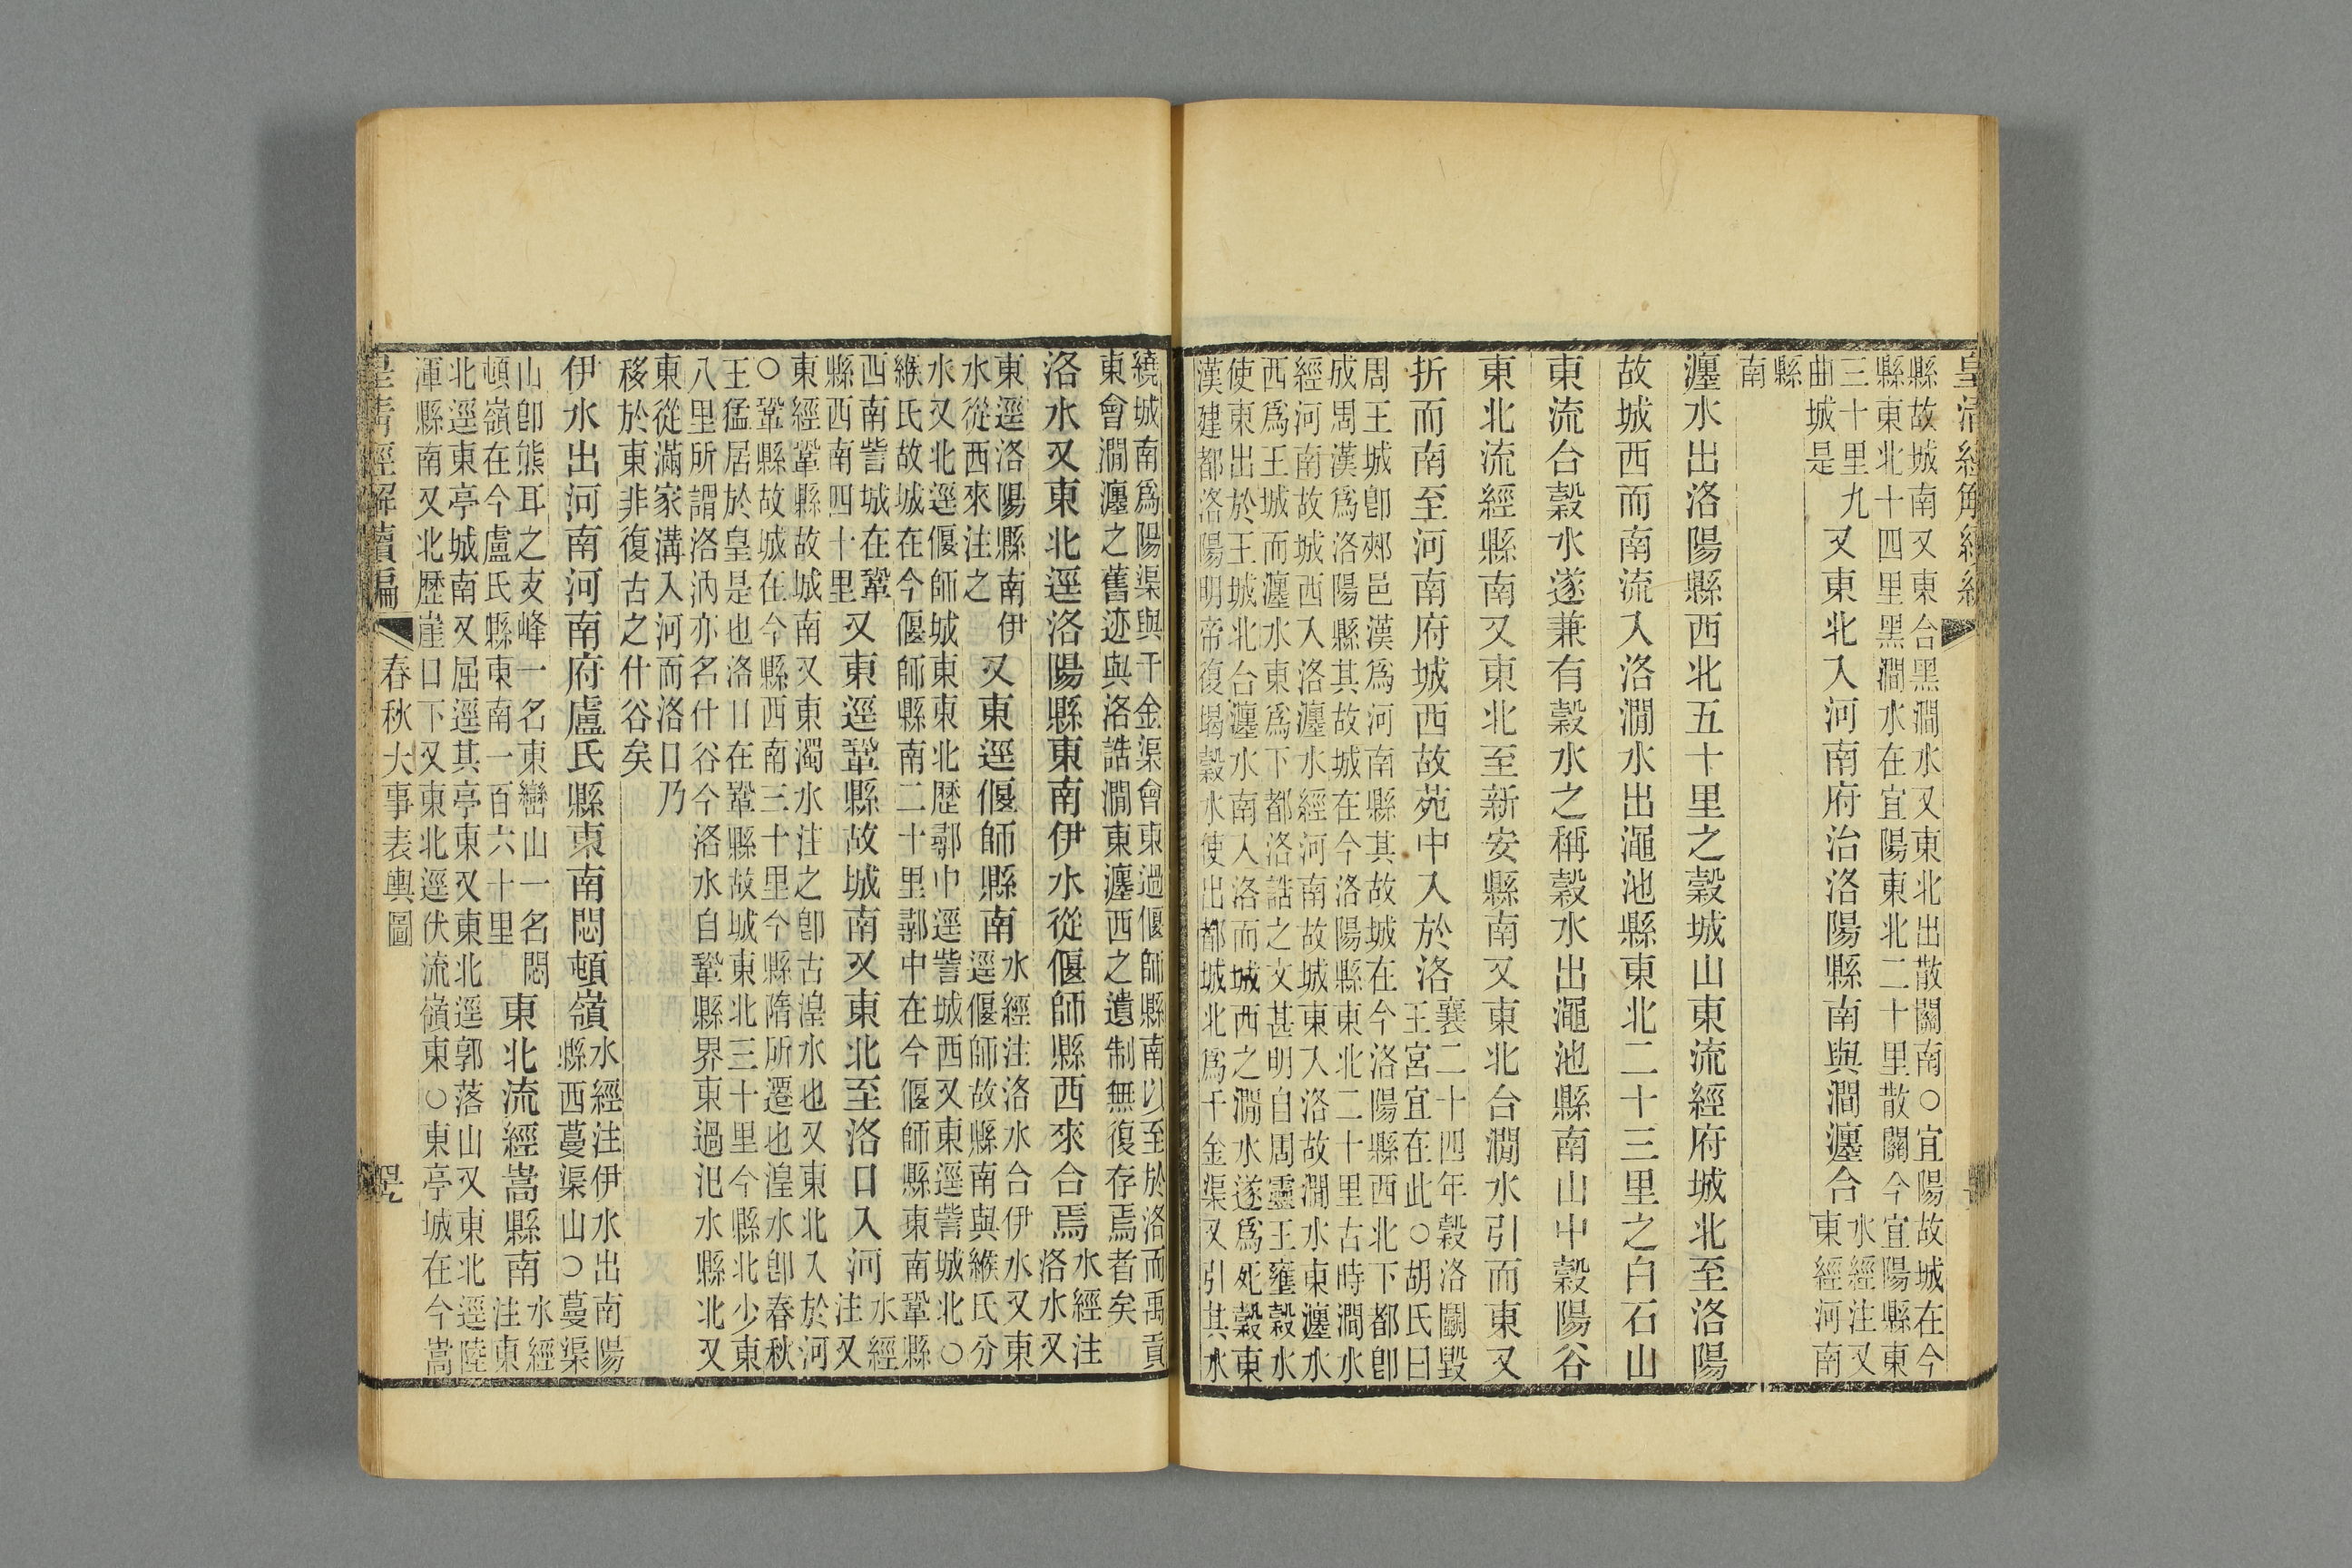 皇清經解續編
縣故城南又東合黑澗水又東北出散關南○宜陽故城在今
縣東北十四里黑澗水在宜陽東北二十里散關今宜陽縣東
三十里九
曲城是
又東北入河南府治洛陽縣南與澗瀍合
水經注又
東經河南
縣
南
瀍水出洛陽縣西北五十里之穀城山東流經府城北至洛陽
故城西而南流入洛澗水出澠池縣東北二十三里之白石山
東流合穀水遂兼有穀水之稱穀水出澠池縣南山中穀陽谷
東北流經縣南又東北至新安縣南又東北合澗水引而東又
折而南至河南府城西故苑中入於洛
襄二十四年穀洛鬭毀
王宮宜在此○胡氏曰
周王城卽郟邑漢爲河南縣其故城在今洛陽縣西北下都卽
成周漢爲洛陽縣其故城在今洛陽縣東北二十里古時澗水
經河南故城西入洛瀍水經河南故城東入洛故澗水東瀍水
西爲王城而瀍水東爲下都洛誥之文甚明自周靈王壅穀水
使東出於王城北合瀍水南入洛而城西之澗水遂爲死穀東
漢建都洛陽明帝復堨穀水使出都城北爲千金渠又引其水
繞城南爲陽渠與千金渠會東過偃師縣南以至於洛而禹貢
東會澗瀍之舊迹與洛誥澗東瀍西之遺制無復存焉者矣
洛水又東北逕洛陽縣東南伊水從偃師縣西來合焉
水經注
洛水又
東逕洛陽縣南伊
水從西來注之
又東逕偃師縣南
水經注洛水合伊水又東
逕偃師故縣南與緱氏分
水又北逕偃師城東東北歷鄩中逕訾城西又東逕訾城北○
緱氏故城在今偃師縣南二十里鄩中在今偃師縣東南鞏縣
西南訾城在鞏
縣西南四十里
又東逕鞏縣故城南又東北至洛口入河
水經
注又
東經鞏縣故城南又東濁水注之卽古湟水也又東北入於河
○鞏縣故城在今縣西南三十里今縣隋所遷也湟水卽春秋
王猛居於皇是也洛口在鞏縣故城東北三十里今縣北少東
八里所謂洛汭亦名什谷今洛水自鞏縣界東過汜水縣北又
東從滿家溝入河而洛口乃
移於東非復古之什谷矣
伊水出河南河南府盧氏縣東南悶頓嶺
水經注伊水出南陽
縣西蔓渠山○蔓渠
山卽熊耳之支峰一名東巒山一名悶
頓嶺在今盧氏縣東南一百六十里
東北流經嵩縣南
水經
注東
北逕東亭城南又屈逕其亭東又東北逕郭落山又東北逕陸
渾縣南又北歷崖口下又東北逕伏流嶺東○東亭城在今嵩
皇清經解續編
春秋大事表輿圖